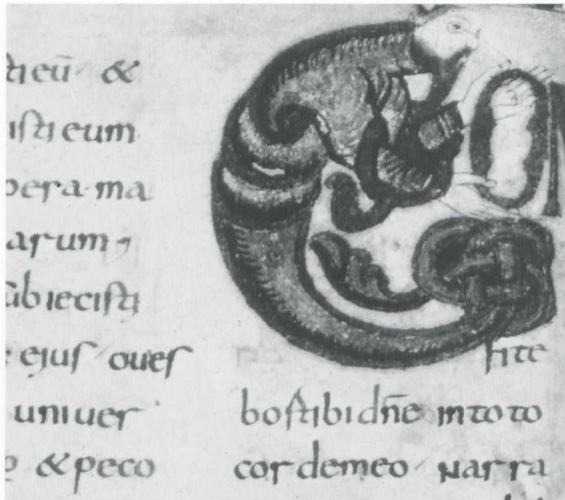 sti eū &
isti eum
pera ma
arum
ubiecisti
eius oues
uniuer
& peco
fite
bor tibi dn̄e in toto
corde meo narra